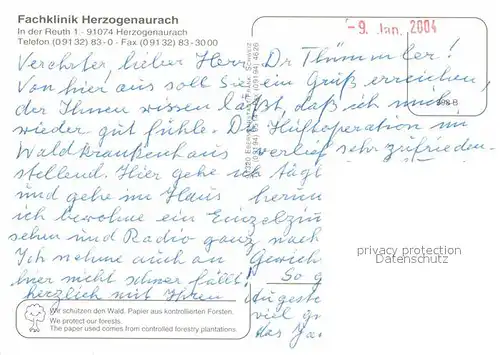 Fachklinik Herzogenaurach
In der Reuth 1 · 91074 Herzogenaurach
Telefon (0 91 32) 83-0 - Fax (0 91 32) 83-30 00
-9. Jan. 2004
Verehrter, lieber Herr Dr Thümmler!
Von hier aus soll Sie ein Gruß erreichen,
der Ihnen wissen läßt, daß ich mich
wieder gut fühle. Die Hüftoperation im
Waldkrankenhaus verlief sehr zufrieden-
stellend. Hier gehe ich tägl
und gehe im Haus herum
ich bewohne ein Einzelzim
sehen und Radio ganz nach
Ich nehme auch an Gewich
hier nicht schwer fällt! So g
herzlich mit Ihren Augeste
viel g
das Ja
privacy protection
Datenschutz
Wir schützen den Wald. Papier aus kontrollierten Forsten.
We protect our forests.
The paper used comes from controlled forestry plantations.